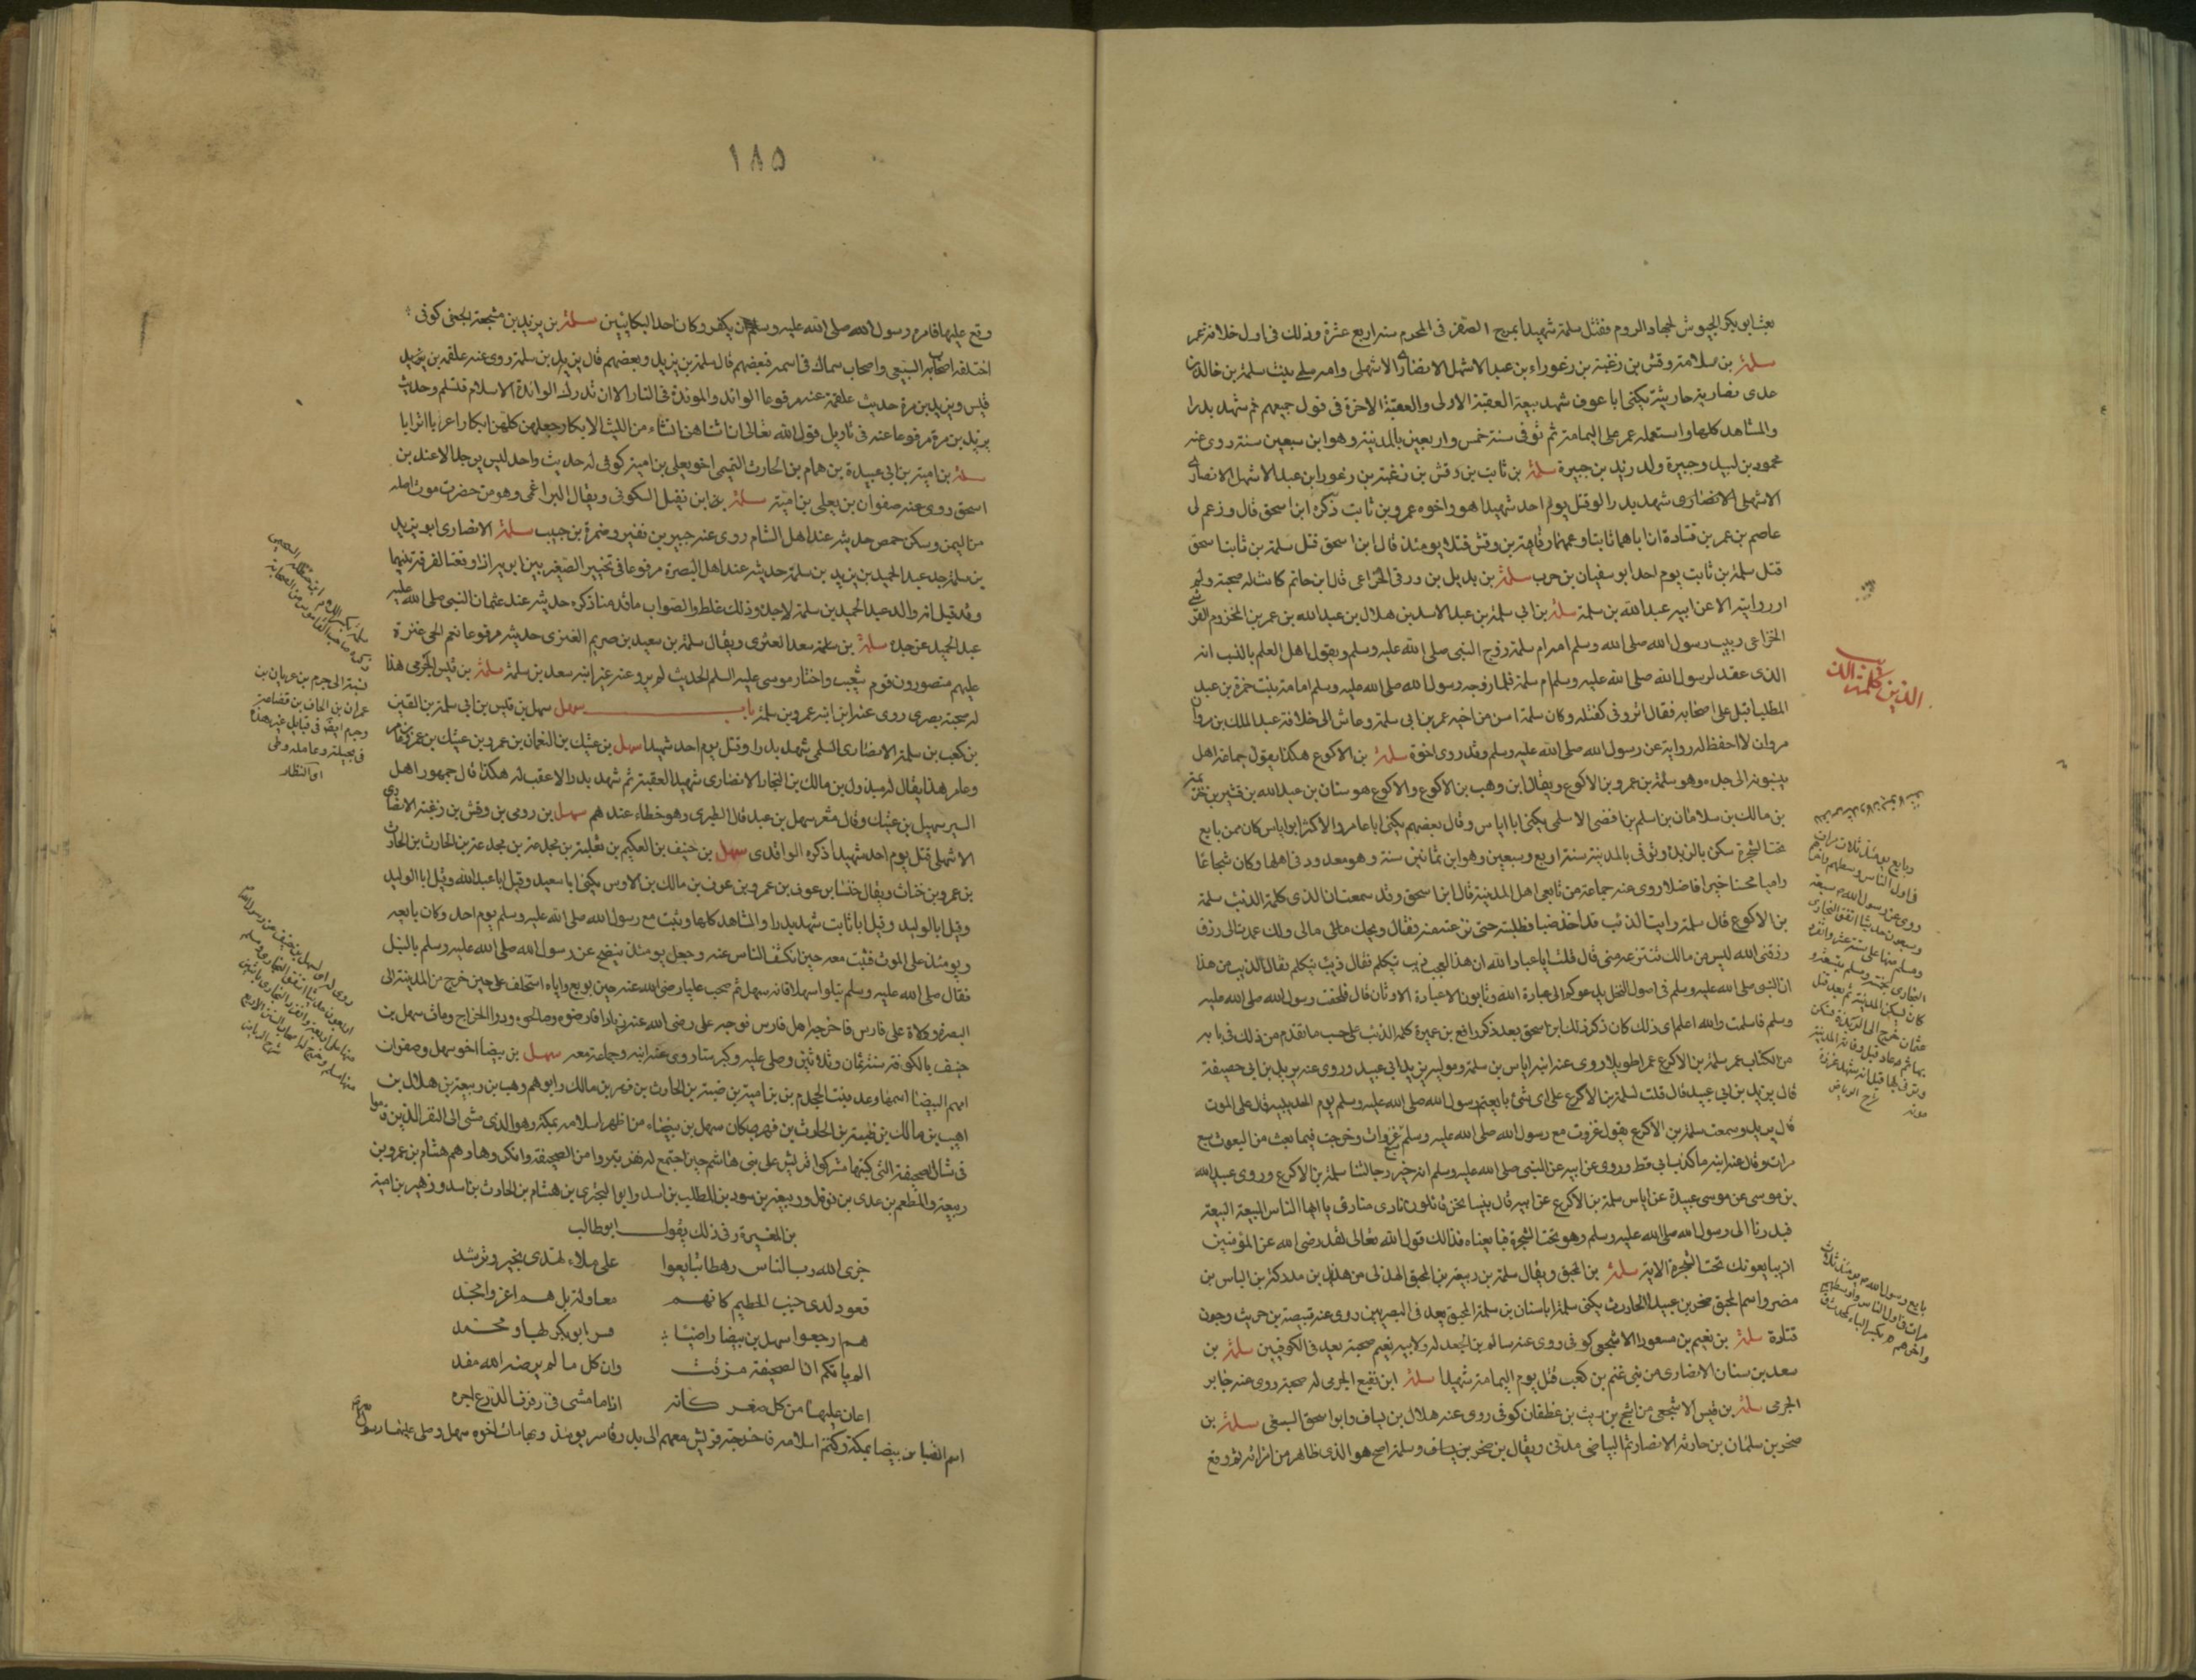 بعث ابو بكر الجيوش لجهاد الروم فقتل سلمة شهيدا بمرج الصفر فى المحرم سنة اربع عشرة وذلك فى اول خلافة عمر
سلمة بن سلامة وقش بن زغبة بن زعوراء بن عبد الاشهل الانصارى الاشهلى وامه سلمى بنت سلمة بن خالد بن
عدى انصارية حارثية يكنى ابا عوف شهد بيعة العقبة الاولى والعقبة الاخرة فى قول جميعهم ثم شهد بدرا
والمشاهد كلها واستعمله عمر على اليمامة ثم توفى سنة خمس واربعين بالمدينة وهو ابن سبعين سنة روى عنه
محمود بن لبيد وجبيرة ولد زيد بن جبيرة سلمة بن ثابت بن وقش بن زغبة بن زعورا بن عبد الاشهل الانصارى
الاشهلى الانصارى شهد بدرا وقتل يوم احد شهيدا هو واخوه عمرو بن ثابت ذكره ابن اسحق قال وزعم لى
عاصم بن عمر بن قتادة ان اباهما ثابتا وعمهما رفاعة بن وقش قتلا يومئذ قال ابن اسحق قتل سلمة بن ثابت
قتل سلمة بن ثابت يوم احد ابو سفيان بن حرب سلمة بن بديل بن ورقى الخزاعى قال ابن حاتم كانت له صحبة ولم
ار روايته الا عن ابيه عبد الله بن سلمة سلمة بن ابى سلمة بن عبد الاسد بن هلال بن عبد الله بن عمر بن المخزوم القرشى
الخزاعى ربيب رسول الله صلى الله وسلم امه ام سلمة زوج النبى صلى الله عليه وسلم ويقول اهل العلم بالنسب انه
الذى عقد لرسول الله صلى الله عليه وسلم ام سلمة فلما زوجه رسول الله صلى الله عليه وسلم امامة بنت حمزة بن عبد
المطلب اقبل على اصحابه فقال اترونى كفئته وكان سلمة اسن من اخيه عمر بن ابى سلمة وعاش الى خلافة عبد الملك بن مروان
مروان لا احفظ له رواية عن رسول الله صلى الله عليه وسلم وقد روى اخوة سلمة بن الاكوع هكذا يقول جماعة اهل
ينسبونه الى جده وهو سلمة بن عمرو بن الاكوع ويقال ابن وهب بن الاكوع والاكوع هو سنان بن عبد الله بن قشير بن
بن مالك بن سلامان بن اسلم بن افصى الاسلمى يكنى ابا اياس وقال بعضهم يكنى ابا عامر والاكثر ابو اياس كان ممن بايع
تحت الشجرة سكن بالربذة وتوفى بالمدينة سنة اربع وسبعين وهو ابن ثمانين سنة وهو معدود فى اهلها وكان شجاعا
راميا محسنا خيرا فاضلا روى عنه جماعة من تابعى اهل المدينة قال ابن اسحق وقد سمعت ان الذى كلمه الذئب سلمة
بن الاكوع قال سلمة رايت الذئب قد اخذ ضبيا فطلبته حتى نزعته منه فقال ويحك مالى مالى ولك عمدت الى رزق
رزقنى الله ليس من مالك تنتزعه منى قال قلت ايا عباد الله ان هذا لعجب ذيب يتكلم فقال ذيب يتكلم فقال الذيب من هذا
ان النبى صلى الله عليه وسلم فى اصول النخل يدعوكم الى عبادة الله وتابون الا عبادة الاوثان قال فلحقت رسول الله صلى الله عليه
وسلم فاسلمت والله اعلم اى ذلك كان ذكر ذلك ابن اسحق بعد ذكر رافع بن عميرة كلمه الذئب على حسب ما تقدم من ذلك فى بابه
من الكتاب عمر سلمة بن الاكوع عمرا طويلا وروى عنه ابنه اياس بن سلمة ومولاه يزيد بن ابى عبيد وروى عنه يزيد بن ابى خصيفة
قال يزيد بن ابى عبيد قال قلت لسلمة بن الاكوع على اى شئ بايعتم رسول الله صلى الله عليه وسلم يوم الحديبية قال على الموت
قال يزيد وسمعت سلمة بن الاكوع يقول غزوت مع رسول الله صلى الله عليه وسلم سبع غزوات وخرجت فيما يبعث من البعوث سبع
مرات وقال عنه ابنه ما كذب ابى قط وروى عن ابيه عن النبى صلى الله عليه وسلم انه خير رجالتنا سلمة بن الاكوع وروى عبيد الله
بن موسى عن موسى عبيدة عن اياس سلمة بن الاكوع عن ابيه قال بينا نحن قائلون نادى مناد يا ايها الناس البيعة البيعة
فبدرنا الى رسول الله صلى الله عليه وسلم وهو تحت الشجرة فبايعناه فذلك قول الله تعالى لقد رضى الله عن المؤمنين
اذ يبايعونك تحت الشجرة الاية سلمة بن المحبق ويقال سلمة بن ربيعة بن المحبق الهذلى من هذيل بن مدركة بن الياس بن
مضر واسم المحبق صخر بن عبيد الحارث يكنى سلمة ابا سنان بن سلمة المحبق يعد فى البصريين روى عنه قبيصة بن حريث وجون
قتادة سلمة بن نعيم بن مسعود الاشجعى كوفى روى عنه سالم بن الجعد له ولابيه نعيم صحبة يعد فى الكوفيين سلمة بن
سعد بن سنان الانصارى من بنى غنم بن كعب قتل يوم اليمامة شهيدا سلمة ابن نفيع الجرمى له صحبة روى عنه جابر
الجرمى سلمة بن قيس الاشجعى من اشجع بن ريث بن غطفان كوفى روى عنه هلال بن يساف وابو اسحق السبيعى سلمة بن
صخر بن سلمان بن حارثة الانصارى البياضى مدنى ويقال بن صخر بن يساف وسلمة اصح هو الذى ظاهر من امراته ثم وقع
الذين كلمهم الذئب
وبايع يومئذ ثلاث مرات
فى اول الناس وسطهم واخرهم
روى عن رسول الله سبعة
وسبعون حديثا اتفق البخارى
ومسلم منها على ستة عشر وانفرد
البخارى بخمسة ومسلم بتسعة
كان يسكن المدينة ثم بعد قتل
عثمان خرج الى الربذة فسكن
١٨٥
وقع عليها فامره رسول الله صلى الله عليه وسلم ان يكفر وكان احد البكائين سلمة بن يزيد بن مشجعة الجعفى كوفى
اختلف اصحاب الشعبى واصحاب سماك فى اسمه فبعضهم قال سلمة بن يزيد وبعضهم قال يزيد بن سلمة روى عنه علقمة بن
قيس ويزيد بن مرة حديث علقمة عنه مرفوعا الوائدة والموئدة فى النار الا ان تدرك الوائدة الاسلام فتسلم وحديث
يزيد بن مرة مرفوعا عنه فى تاويل قول الله تعالى انا انشاناهن انشاء من الثيب الابكار وجعلهن كلهن ابكارا عربا اترابا
سلمة بن امية بن ابى عبيدة بن همام بن الحارث التميمى اخو يعلى بن امية كوفى له حديث واحد ليس يوجد الا عند بن
اسحق روى عنه صفوان بن يعلى بن امية سلمة بن نفيل السكونى ويقال التراغمى وهو من حضرموت اصله
من اليمن وسكن حمص حديثه عند اهل الشام روى عنه جبير بن نفير وضمرة بن حبيب سلمة الانصارى ابو يزيد
بن سلمة جد عبد الحميد بن يزيد بن سلمة حديثه عند اهل البصرة مرفوعا فى تخيير الصغير بين ابويه اذا وقعت الفرقة بينهما
وقد قيل انه والد عبد الحميد بن سلمة لا جده وذلك غلط والصواب ما قدمنا ذكره حديثه عند عثمان النبى صلى الله عليه
عبد الحميد عن جده سلمة بن سلمة سعد العنزى ويقال سلمة بن سعيد بن صريم العنزى حديثه مرفوعا نعم الحى عنزة
عليهم منصورون قوم شعيب واختان موسى عليه السلم الحديث لم يرو عنه غير ابنه سعد بن سلمة سلمة بن قيس الجرمى هذا
له صحبة بصرى روى عنه ابن ابنه عمرو بن سلمة باب سهل سهل بن قيس بن ابى سلمة بن القين
بن كعب بن سلمة الانصارى السلمى شهد بدرا وقتل يوم احد شهيدا سهل بن عتيك بن النعمان بن عمرو بن عتيك بن عمرو بن عامر
وعامر هذا يقال له مبذول بن مالك بن النجار الانصارى شهد العقبة ثم شهد بدرا لا عقب له هكذا قال جمهور اهل
السير سهيل بن عتيك وقال معمر سهل بن عبد قال الطبرى وهو خطاء عندهم سهل بن رومى بن وقش بن زغبة الانصارى
الاشهلى قتل يوم احد شهيدا ذكره الواقدى سهل بن حنيف بن العكيم بن ثعلبة بن مجدعة بن الحارث
بن عمرو بن خناث ويقال خنسا بن عوف بن عمرو بن عوف بن مالك بن الاوس يكنى ابا سعيد وقيل ابا عبد الله وقيل ابا الوليد
وقيل ابا الوليد وقيل ابا ثابت شهد بدرا والمشاهد كلها وثبت مع رسول الله صلى الله عليه وسلم يوم احد وكان بايعه
يومئذ على الموت فثبت معه حين انكشف الناس عنه وجعل يومئذ ينضح عن رسول الله صلى الله عليه وسلم بالنبل
فقال صلى الله عليه وسلم نبلوا سهلا فانه سهل ثم صحب عليا رضى الله عنه حين بويع واياه استخلف على حين خرج من المدينة الى
البصرة وولاه على فارس فاخرجه اهل فارس فوجه على رضى الله عنه زيادا فارضوه وصالحوه وردوا الخراج ومات سهل بن
حنيف بالكوفة سنة ثمان وثلاثين وصلى عليه وكبر ستا روى عنه ابنه وجماعة معه سهل بن بيضا اخو سهل وصفوان
امهم البيضا اسمها دعد بنت الجحدم بن امية بن ضبة بن الحارث بن فهر بن مالك وابوهم وهب بن ربيعة بن هلال بن
اهيب بن مالك بن ضبة بن الحارث بن فهر كان سهل بن بيضاء من اظهر اسلامه بمكة وهو الذى مشى الى النفر الذين قاموا
فى شان الصحيفة التى كتبها مشركوا قريش على بنى هاشم حين اجتمع له نفر تبرءوا من الصحيفة وانكروها وهم هشام بن عمرو بن
ربيعة والمطعم بن عدى بن نوفل وربيعة بن سود بن المطلب بن اسد وابو البخترى بن هشام بن الحارث بن اسد وزهير بن امية
بن المغيرة وفى ذلك يقول ابو طالب
جزى الله رب الناس رهطا تبايعوا على ملاء تهدى بخير وترشد
قعود لدى جنب الحطيم كانهم مقاولة بل هم اعز وامجد
هم ارجعوا سهل بن بيضا راضيا فسر ابو بكر لها ومحمد
الم ياتكم ان الصحيفة مزقت وان كل ما لم يرضه الله مفسد
اعان عليها من كل صقر كانه اذا ما مشى فى رفرف الدرع اجرد
اسلم بن بيضا بمكة وكتم اسلامه فاخرجته قريش معهم الى بدر فاسر يومئذ ومات اخوه سهل وصلى عليهما رسول الله
نسبة الى جرم بن ريان بن
عمران بن الحاف بن قضاعة
وجرم ايضا فى قبايل غير هذه
فى بجيلة وعاملة وطى